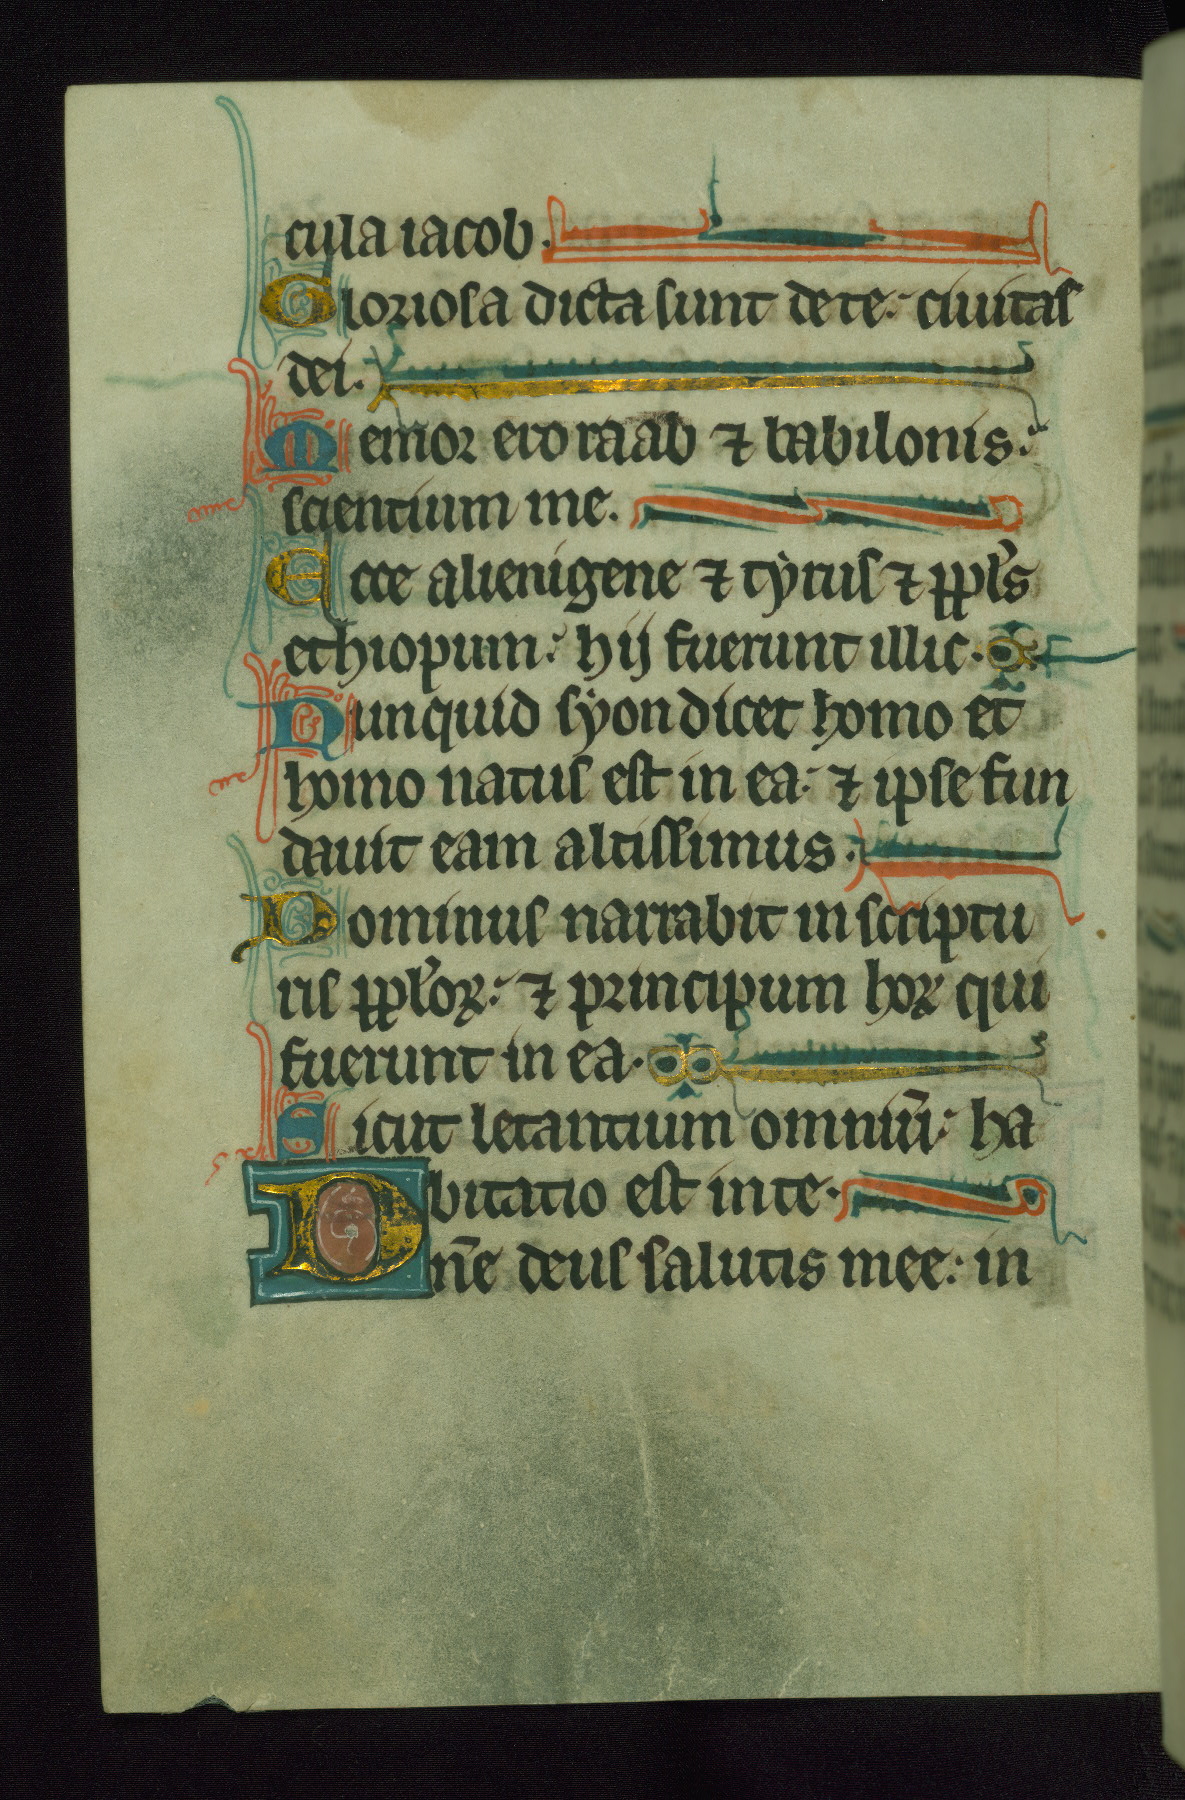 cula iacob.
Gloriosa dicta sunt de te: ciuitas
dei.
Memor ero raab ⁊ babilonis:
scientium me.
Ecce alienigene ⁊ tẏrus ⁊ ppl̓s
ethiopum: hij fuerunt illic.
Nunquid sẏon dicet homo et
homo natus est in ea: ⁊ ipse fun
dauit eam altissimus.
Dominus narrabit in scriptu
ris ppl̓oꝝ: ⁊ principum hoꝝ qui
fuerunt in ea.
Sicut letantium omniū: ha
bitatio est in te.
Dn̄e deus salutis mee: in